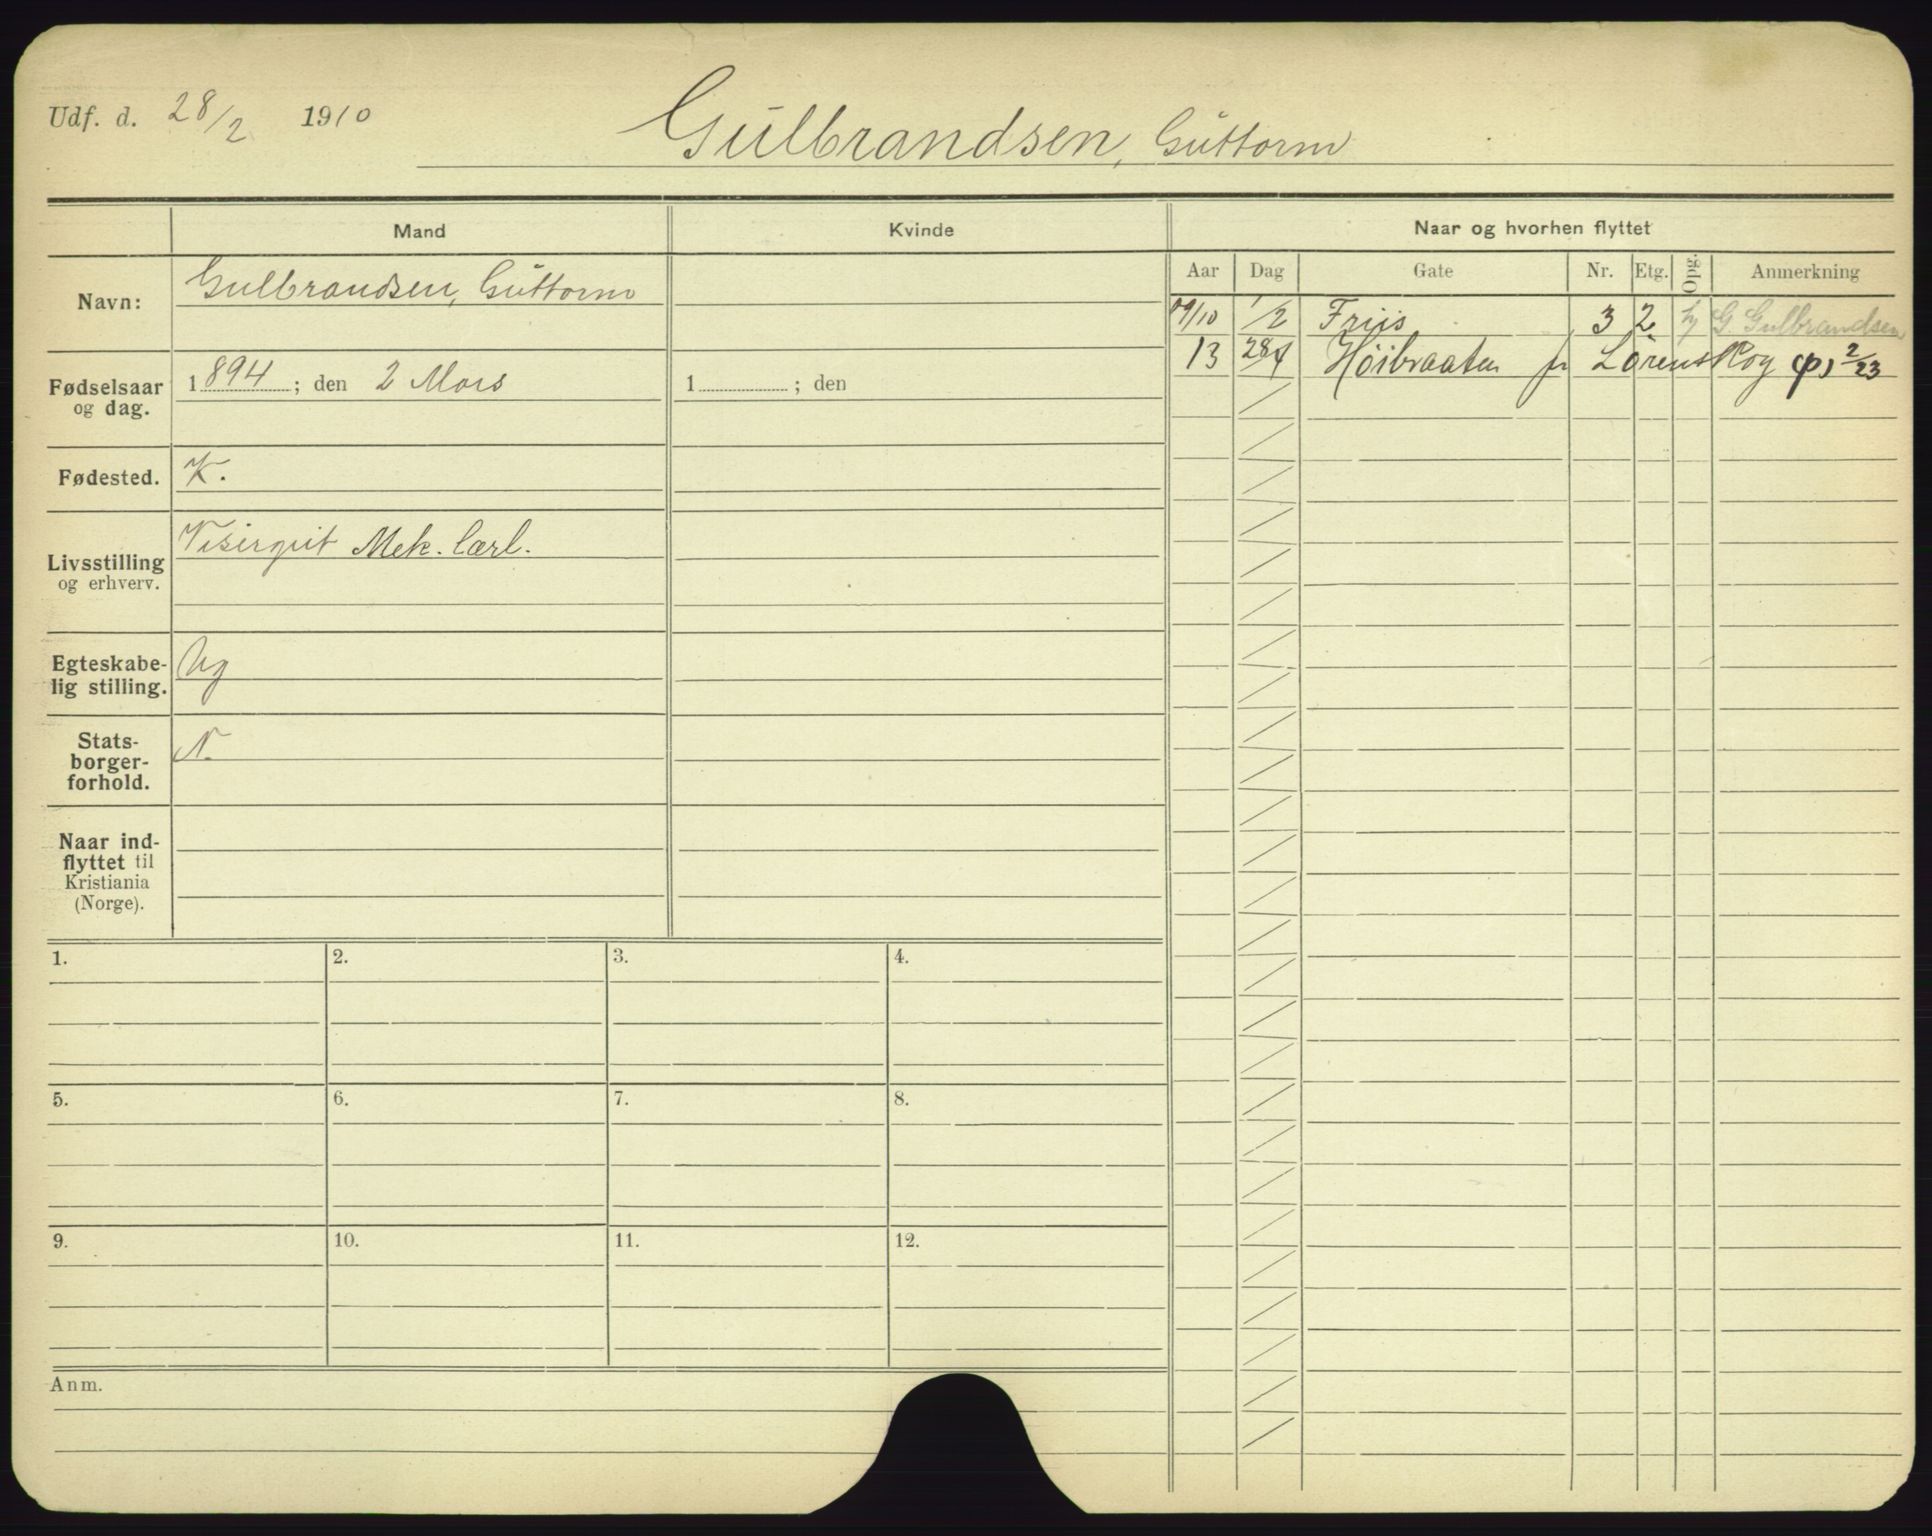 Udf. d. 28/2 1910
Gulbrandsen, Guttorm
Mand Kvinde Naar og hvorhen flyttet
Aar Dag Gate Nr. Etg. Opg. Anmerkning
Navn: Gulbrandsen, Guttorm
09/10 1/2 Friis 3 2 G. Gulbrandsen
13 28/4 Høibraaten pr Lørenskog φ) 2/23
Fødselsaar 1894; den 2 Mars 1 ; den
og dag.
Fødested. K.
Livsstilling Visergut Mek. lærl.
og erhverv.
Egteskabe- Ug
lig stilling.
Stats- N.
borger-
forhold.
Naar ind-
flyttet til
Kristiania
(Norge).
1. 2. 3. 4.
5. 6. 7. 8.
9. 10. 11. 12.
Anm.